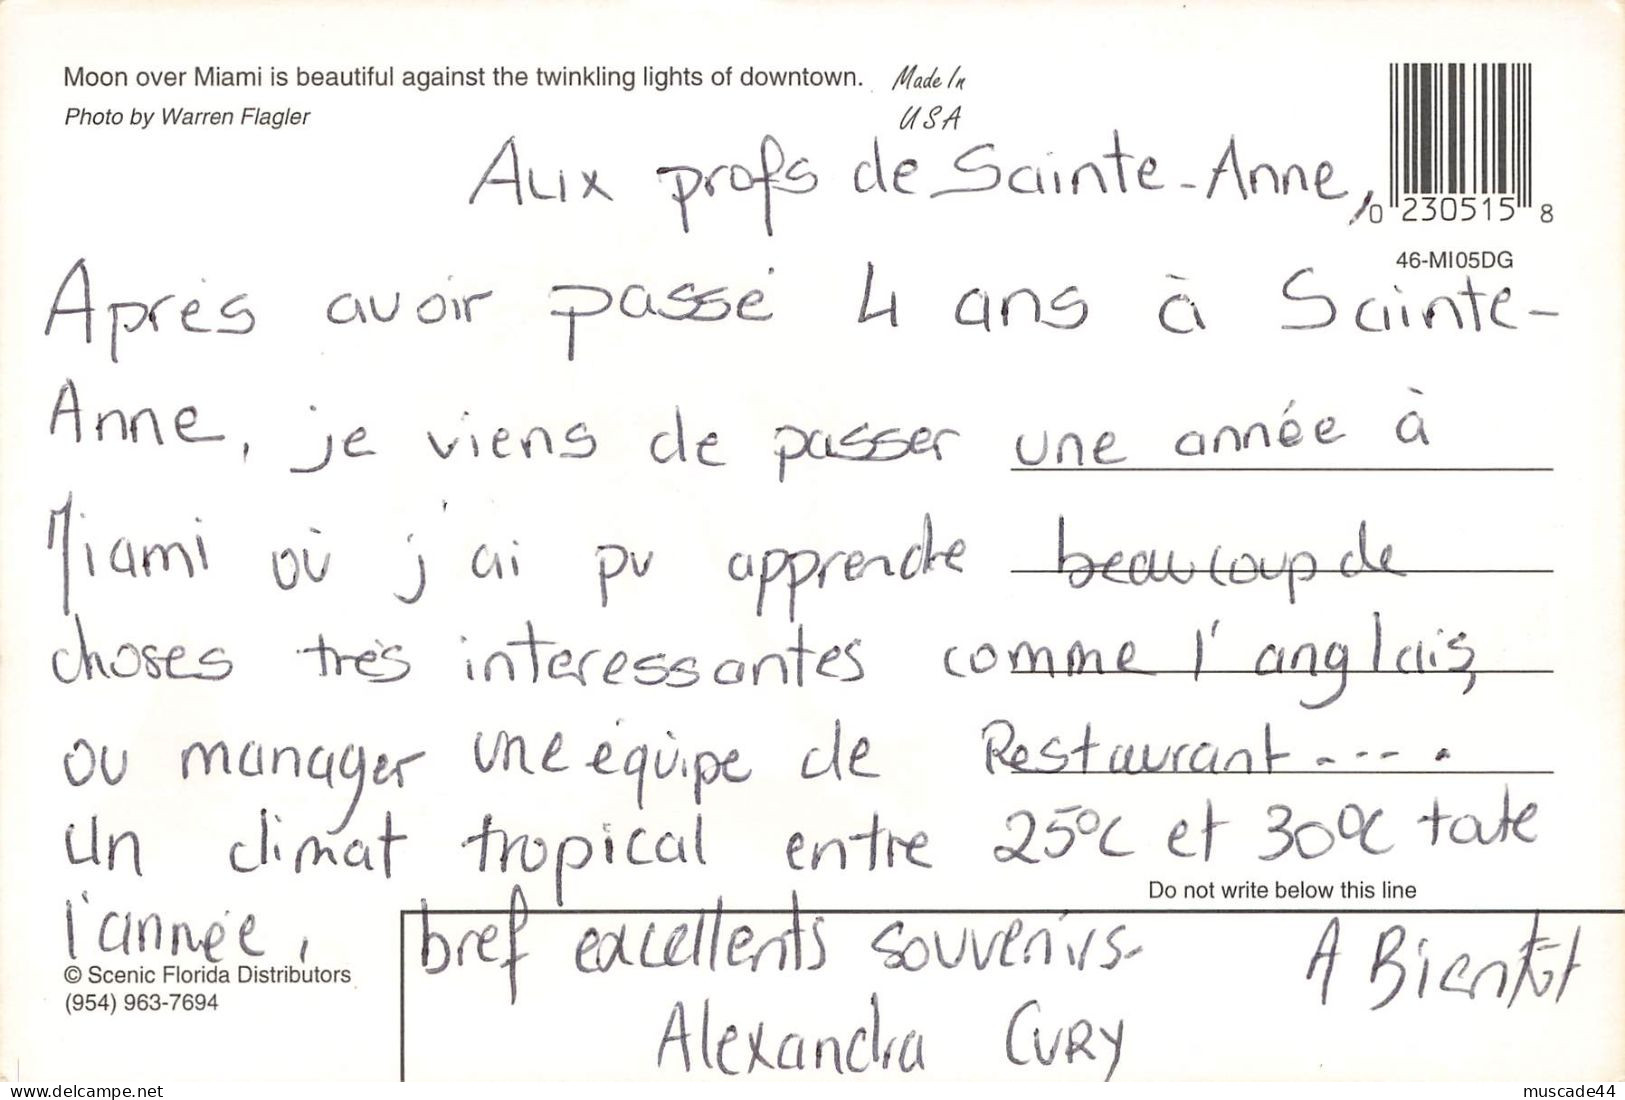 Moon over Miami is beautiful against the twinkling lights of downtown. Made In
Photo by Warren Flagler USA
Aux profs de Sainte-Anne,
0 230515 8
46-MI05DG
Après avoir passé 4 ans à Sainte-
Anne, je viens de passer une année à
Miami où j'ai pu apprendre beaucoup de
choses très interessantes comme l'anglais,
ou manager une équipe de Restaurant....
Un climat tropical entre 25°C et 30°C toute
Do not write below this line
l'année, bref excellents souvenirs.
A Bientôt
© Scenic Florida Distributors
(954) 963-7694
Alexandra CURY
www.delcampe.net
muscade44